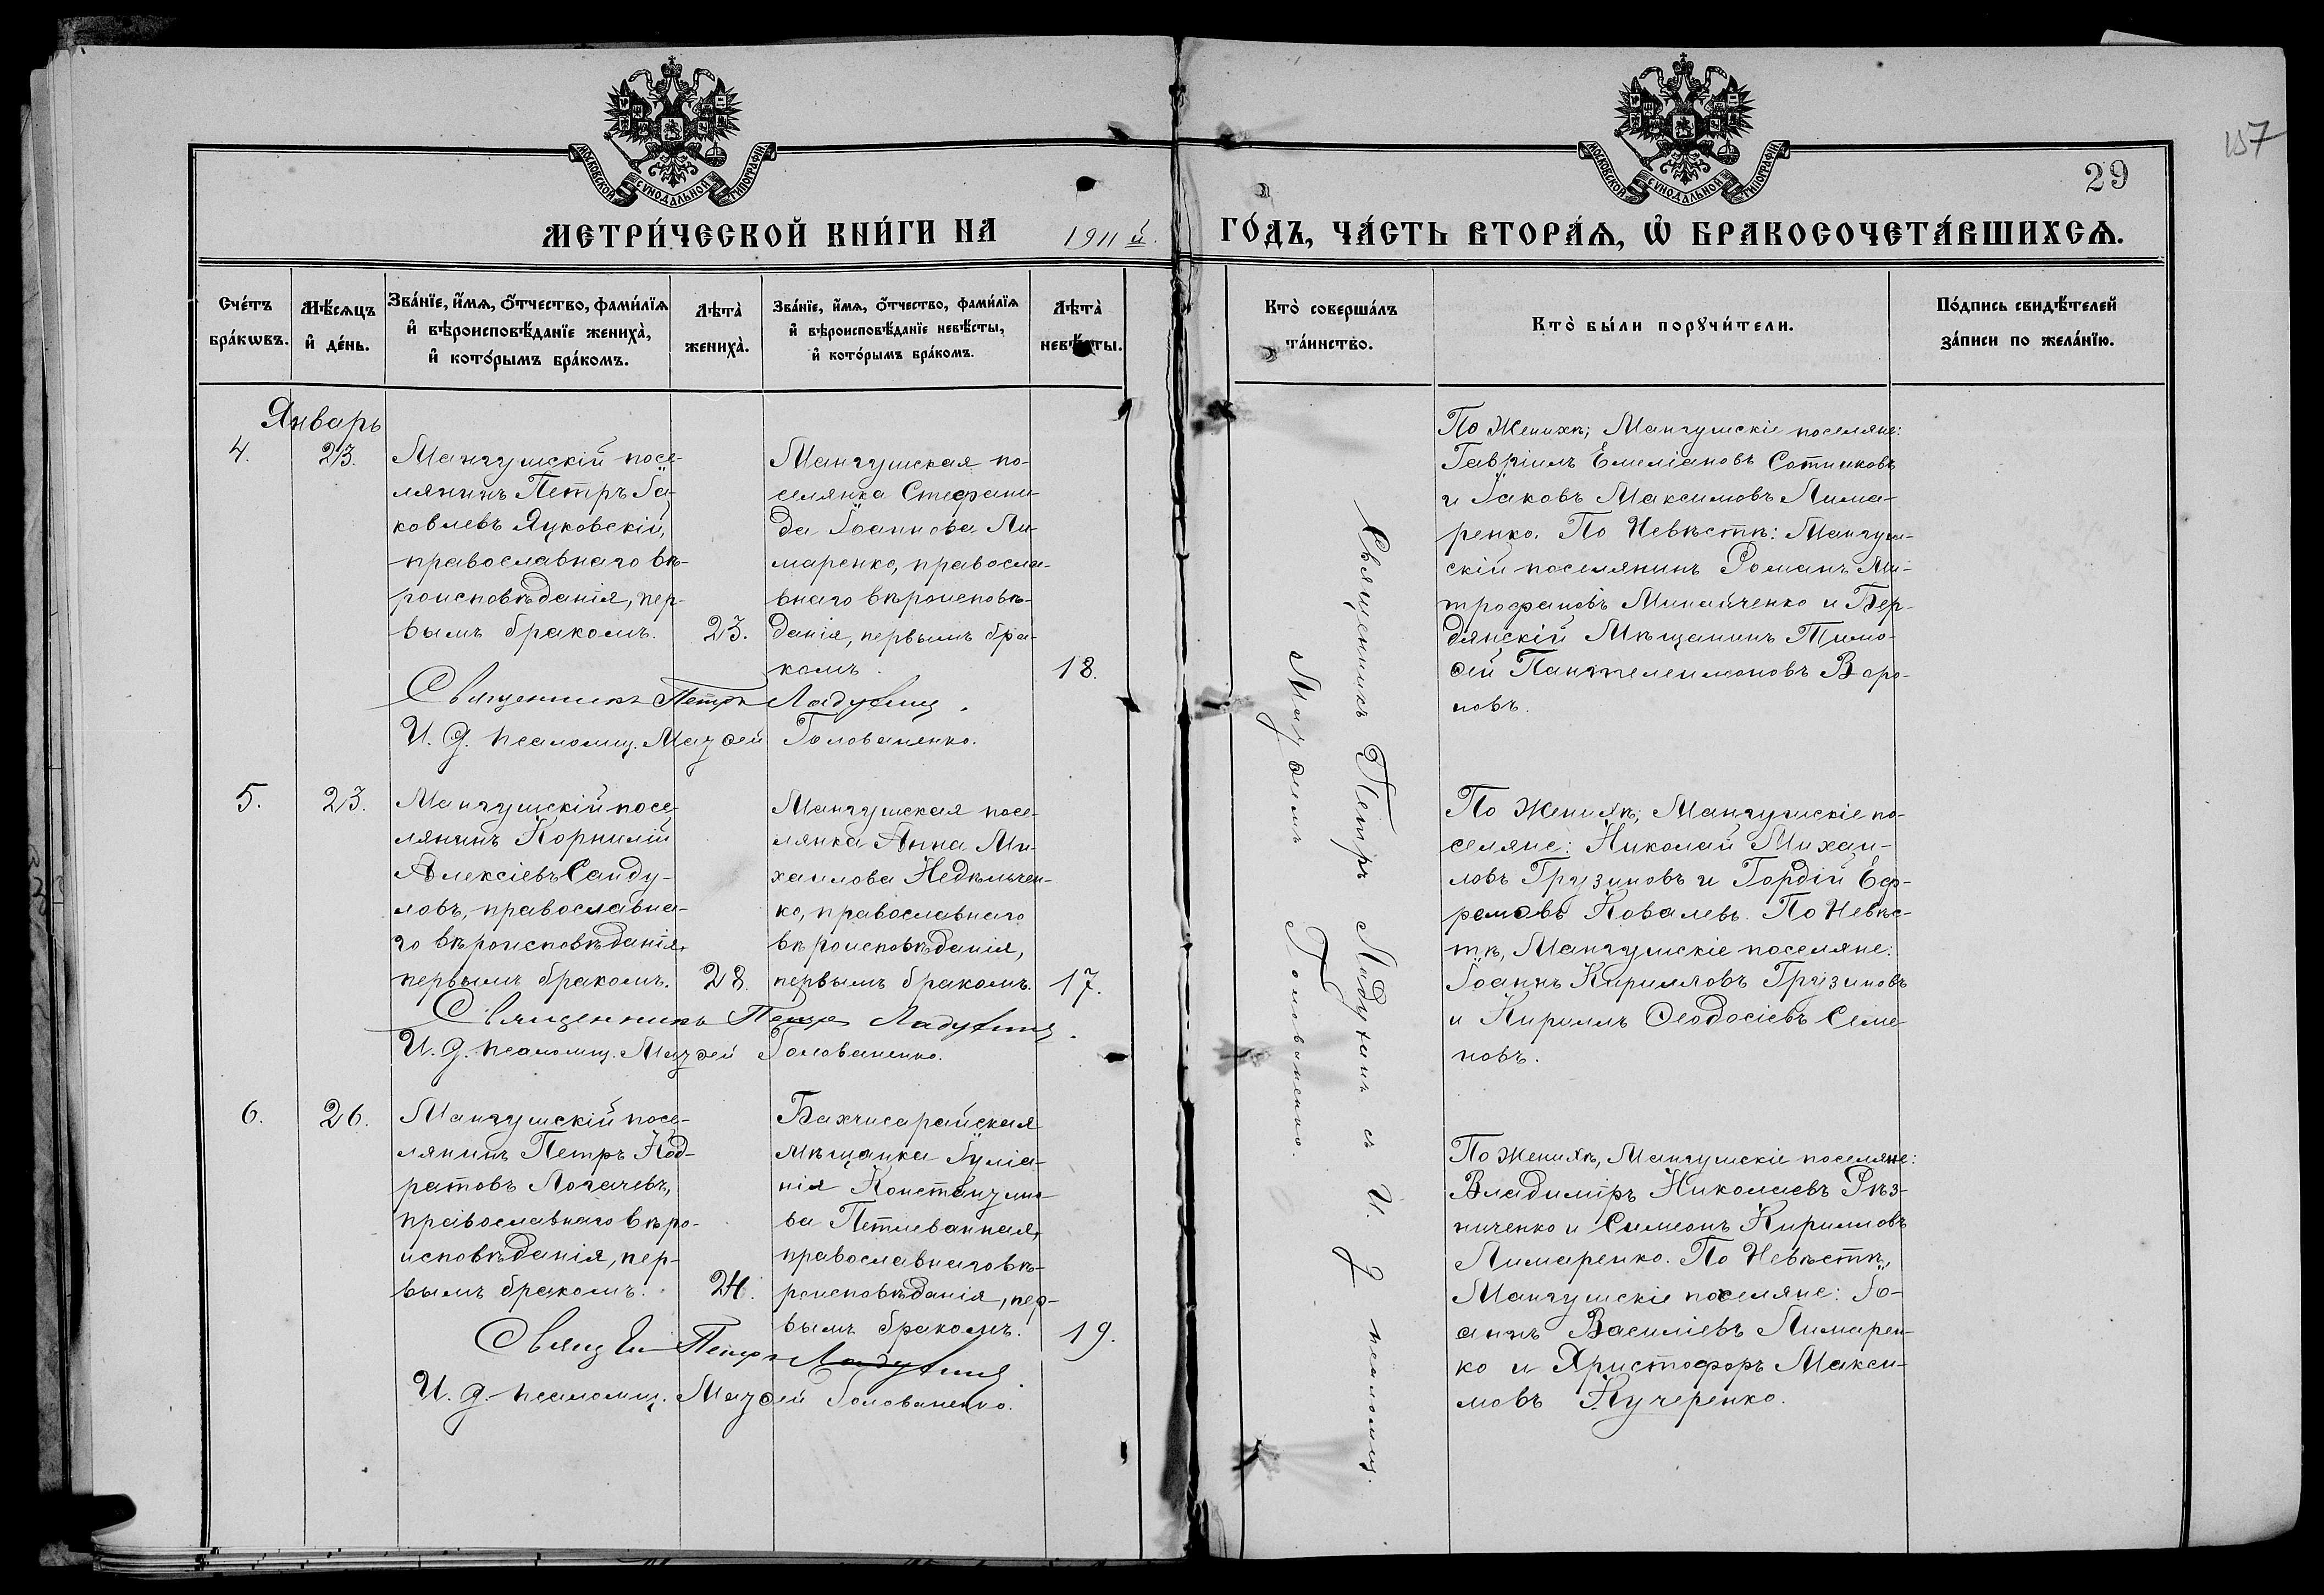 157
29
МОСКОВСКОЙ СѴНОДАЛЬНОЙ ТИПОГРАФІИ
МОСКОВСКОЙ СѴНОДАЛЬНОЙ ТИПОГРАФІИ
МЕТРИ́ЧЕСКОЙ КНИ́ГИ НА 1911 й. ГО́ДЪ, ЧА́СТЬ ВТОРА́Ѧ, Ѽ БРАКОСОЧЕТА́ВШИХСѦ.
Сче́тъ бра́кѡвъ.
Мѣ́сѧцъ и҆ де́нь.
Зва́нїе, и҆́мѧ, ѻ҆́тчество, фами́лїѧ
и҆ вѣроисповѣ́данїе жениха̀,
и҆ кото́рымъ бра́комъ.
Лѣта̀ жениха̀.
Зва́нїе, и҆́мѧ, ѻ҆́тчество, фами́лїѧ
и҆ вѣроисповѣ́данїе невѣ́сты,
и҆ кото́рымъ бра́комъ.
Лѣта̀ невѣ́сты.
Кто̀ соверша́лъ та́инство.
Кто̀ бы́ли порꙋчи́тели.
По́дпись свидѣ́телей
за́писи по жела́нїю.
Январь
4.
23.
Мангушскій посе-
лянинъ Петръ Іа-
ковлевъ Яцковскій,
православнаго вѣ-
роисповѣданія, пер-
вымъ бракомъ.
23.
Мангушская по-
селянка Стефани-
да Іоаннова Ли-
маренко, правосла-
внаго вѣроисповѣ-
данія, первымъ бра-
комъ.
18.
Священникъ Петръ Ладухинъ.
И. д. псаломщ. Матѳей Голованенко.
По Женихѣ; Мангушскіе поселяне:
Гавріилъ Емиліановъ Сотниковъ
и Іаковъ Максимовъ Лима-
ренко. По Невѣстѣ: Мангуш-
скій поселянинъ Романъ Ми-
трофановъ Минайченко и Бер-
дянскій Мѣщанинъ Тимо-
ѳей Пантелеимоновъ Воро-
новъ.
5.
23.
Мангушскій посе-
лянинъ Корнилій
Алексіевъ Санду-
ловъ, православна-
го вѣроисповѣданія,
первымъ бракомъ.
28.
Мангушская посе-
лянка Анна Ми-
хаилова Недѣльчен-
ко, православнаго
вѣроисповѣданія,
первымъ бракомъ.
17.
Священникъ Петръ Ладухинъ.
И. д. псаломщ. Матѳей Голованенко.
По Женихѣ; Мангушскіе по-
селяне: Николай Михаи-
ловъ Грузиновъ и Гордій Еф-
ремовъ Ковалевъ. По Невѣс-
тѣ, Мангушскіе поселяне:
Іоаннъ Кирилловъ Грузиновъ
и Кириллъ Ѳеодосіевъ Семе-
новъ.
6.
26.
Мангушскій посе-
лянинъ Петръ Код-
ратовъ Логачевъ,
православнаго вѣро-
исповѣданія, пер-
вымъ бракомъ.
24.
Бахчисарайская
мѣщанка Іуліа-
нія Константино-
ва Петлеванная,
православнаго вѣ-
роисповѣданія, пер-
вымъ бракомъ.
19.
Петръ Ладухинъ.
И. д. псаломщ. Матѳей Голованенко.
По Женихѣ, Мангушскіе поселяне:
Владиміръ Николаевъ Рѣз-
ниченко и Симеонъ Кирилловъ
Лимаренко. По Невѣстѣ,
Мангушскіе поселяне: Іо-
аннъ Василіевъ Лимарен-
ко и Христофоръ Макси-
мовъ Кучеренко.
Священникъ Петръ Ладухинъ съ И. д. псаломщ.
Матѳеемъ Голованенко.